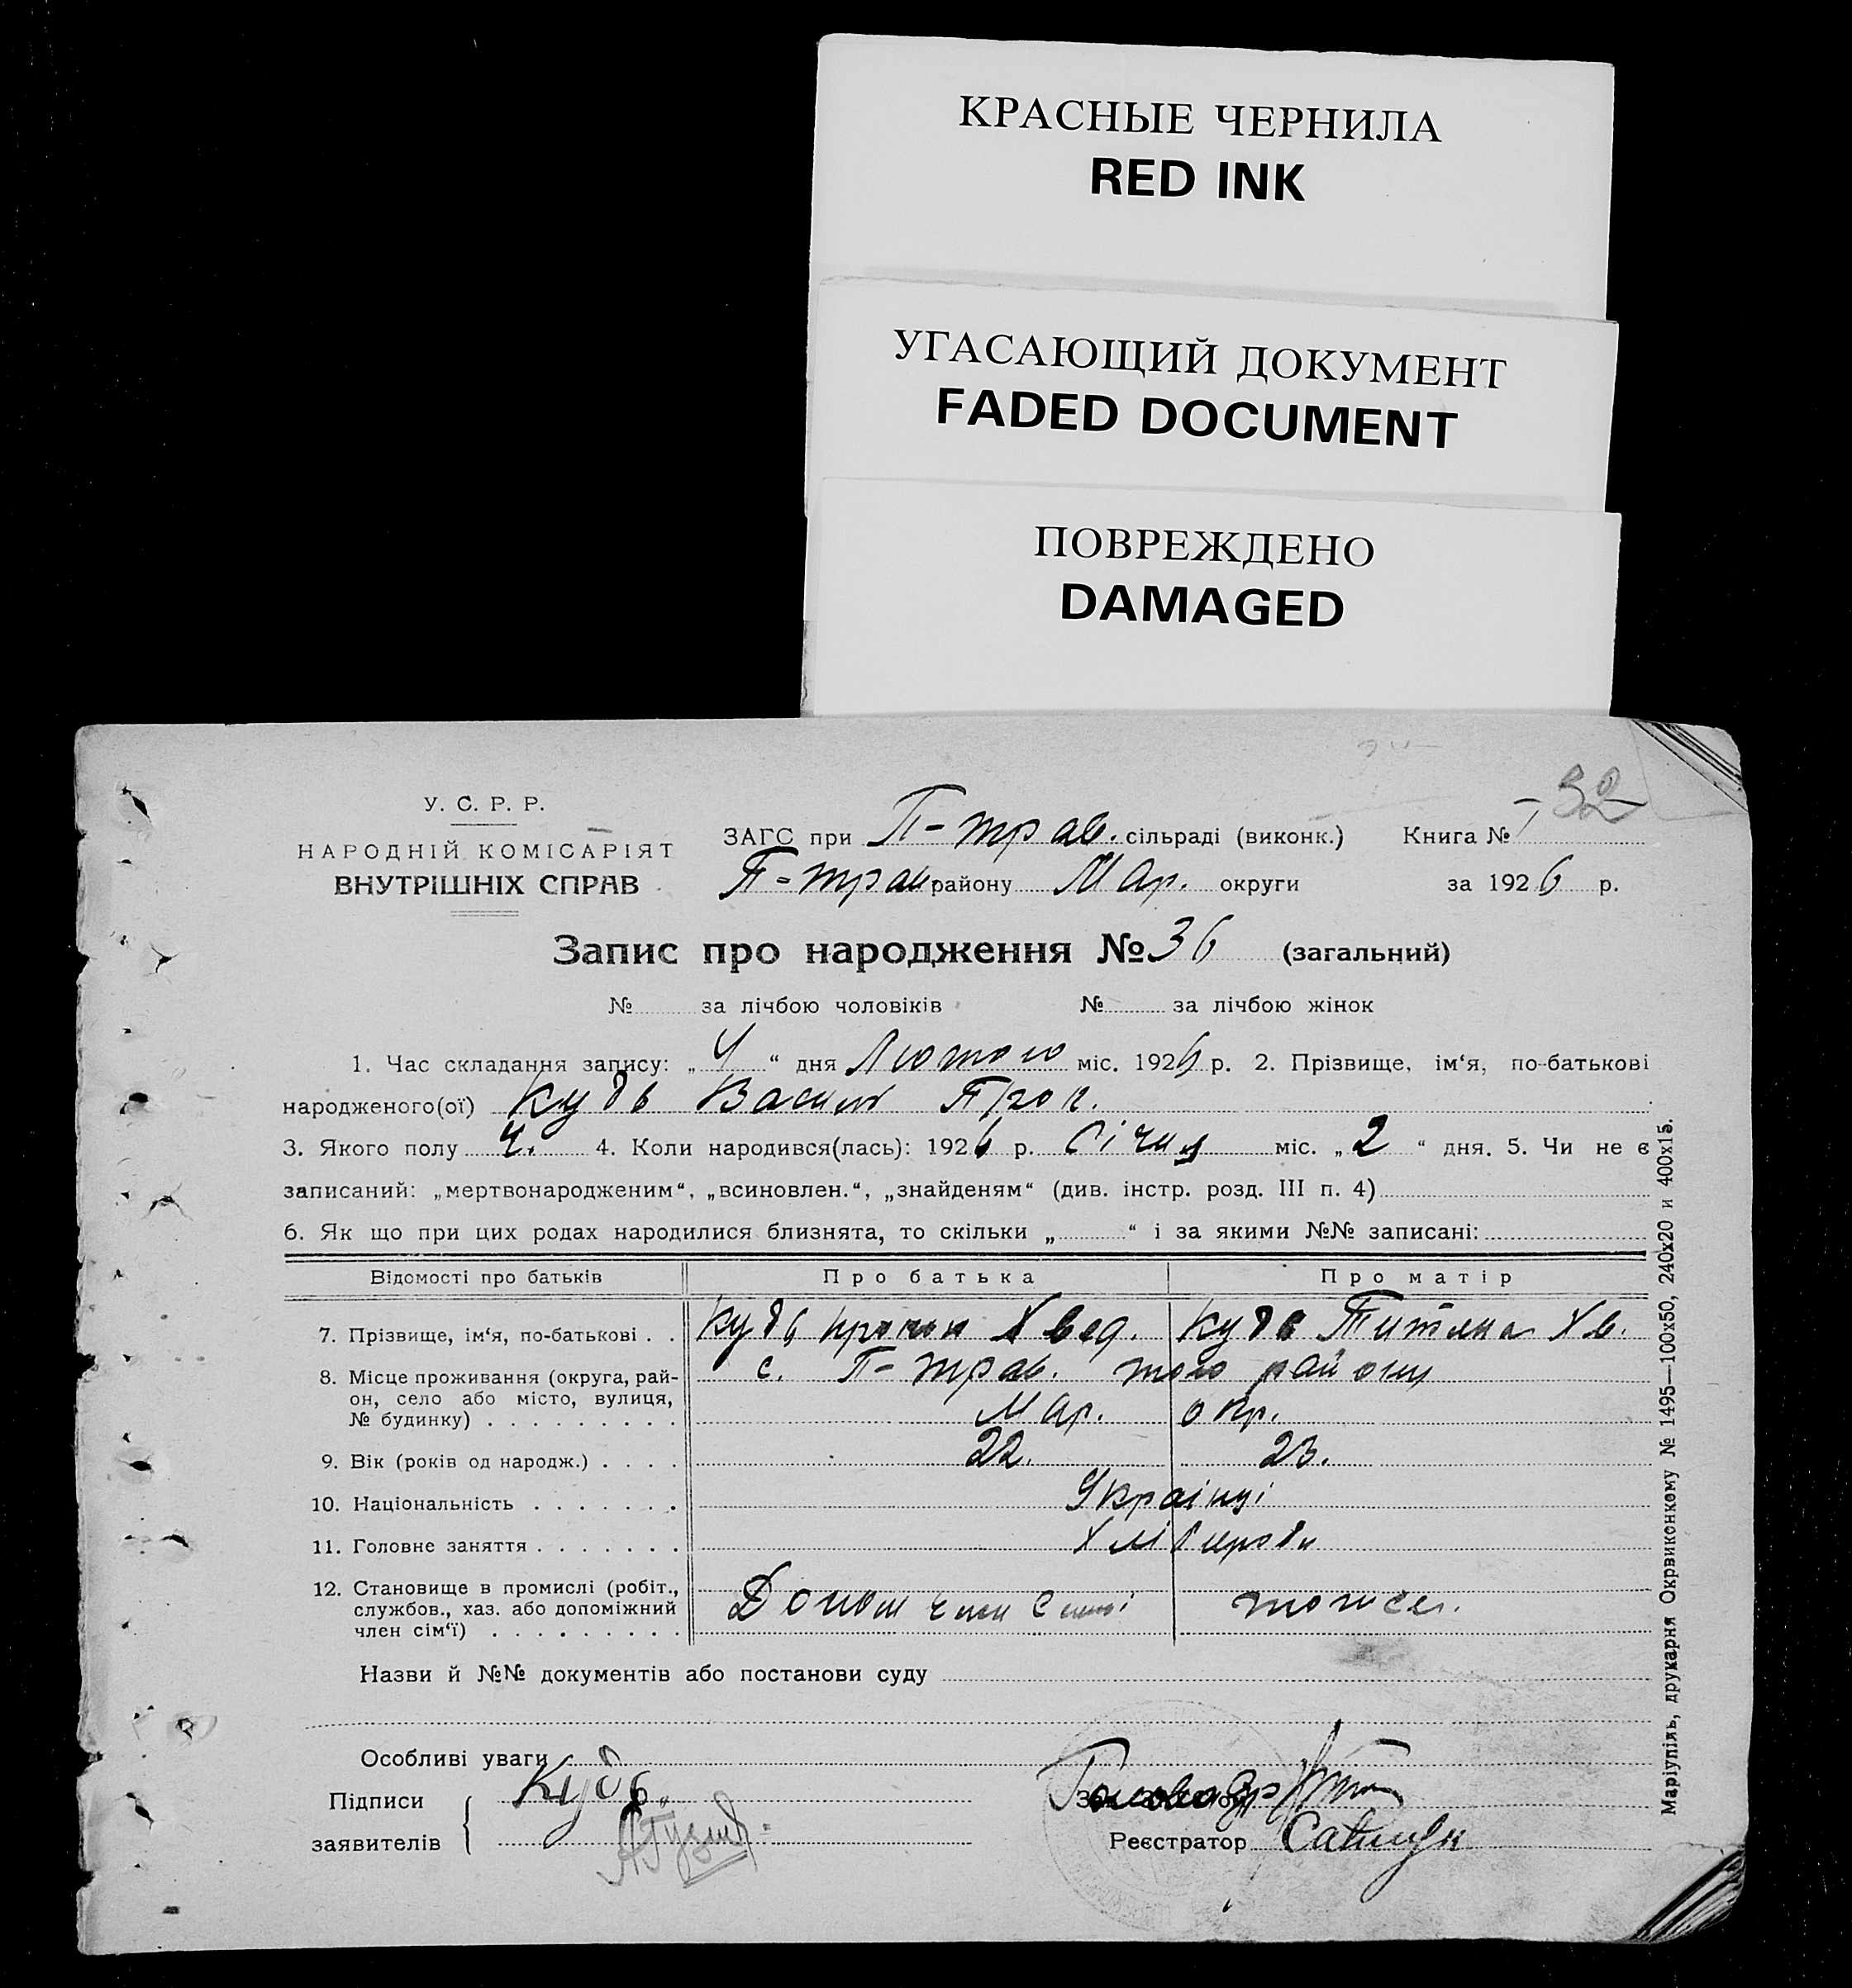 КРАСНЫЕ ЧЕРНИЛА
RED INK
УГАСАЮЩИЙ ДОКУМЕНТ
FADED DOCUMENT
ПОВРЕЖДЕНО
DAMAGED
32
У. С. Р. Р.
НАРОДНІЙ КОМІСАРІЯТ
ВНУТРІШНІХ СПРАВ
ЗАГС при П-трав. сільраді (виконк.) Книга №
П-трав району Мар. округи за 1926 р.
Запис про народження № 36 (загальний)
№ за лічбою чоловіків № за лічбою жінок
1. Час складання запису: „4“ дня Лютого міс. 1926 р. 2. Прізвище, ім‘я, по-батькові
народженого(ої) Кудь Василь Прок.
3. Якого полу ч. 4. Коли народився(лась): 1926 р. Січня міс. „2“ дня. 5. Чи не є
записаний: „мертвонародженим“, „всиновлен.“, „знайденям“ (див. інстр. розд. III п. 4)
6. Як що при цих родах народилися близнята, то скільки „ “ і за якими №№ записані:
Відомості про батьків Про батька Про матір
7. Прізвище, ім‘я, по-батькові . . Кудь Хвед. Кудь Хв.
8. Місце проживання (округа, рай-
он, село або місто, вулиця,
№ будинку) . . . . . . . . .
с. П-трав. того району
Мар. окр.
9. Вік (років од народж.) . . . . 22. 23.
10. Національність . . . . . . . Українці
11. Головне заняття . . . . . . . Хлібороби
12. Становище в промислі (робіт.,
службов., хаз. або допоміжний
член сім‘ї) . . . . . . . . .
Допом член сімї
Назви й №№ документів або постанови суду
Особливі уваги
Підписи
заявителів
Кудь
Голова
Реєстратор
Маріупіль, друкарня Окрвиконкому № 1495—100х50, 240х20 и 400х15.